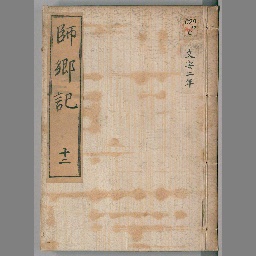 師郷記
十二
文安二年